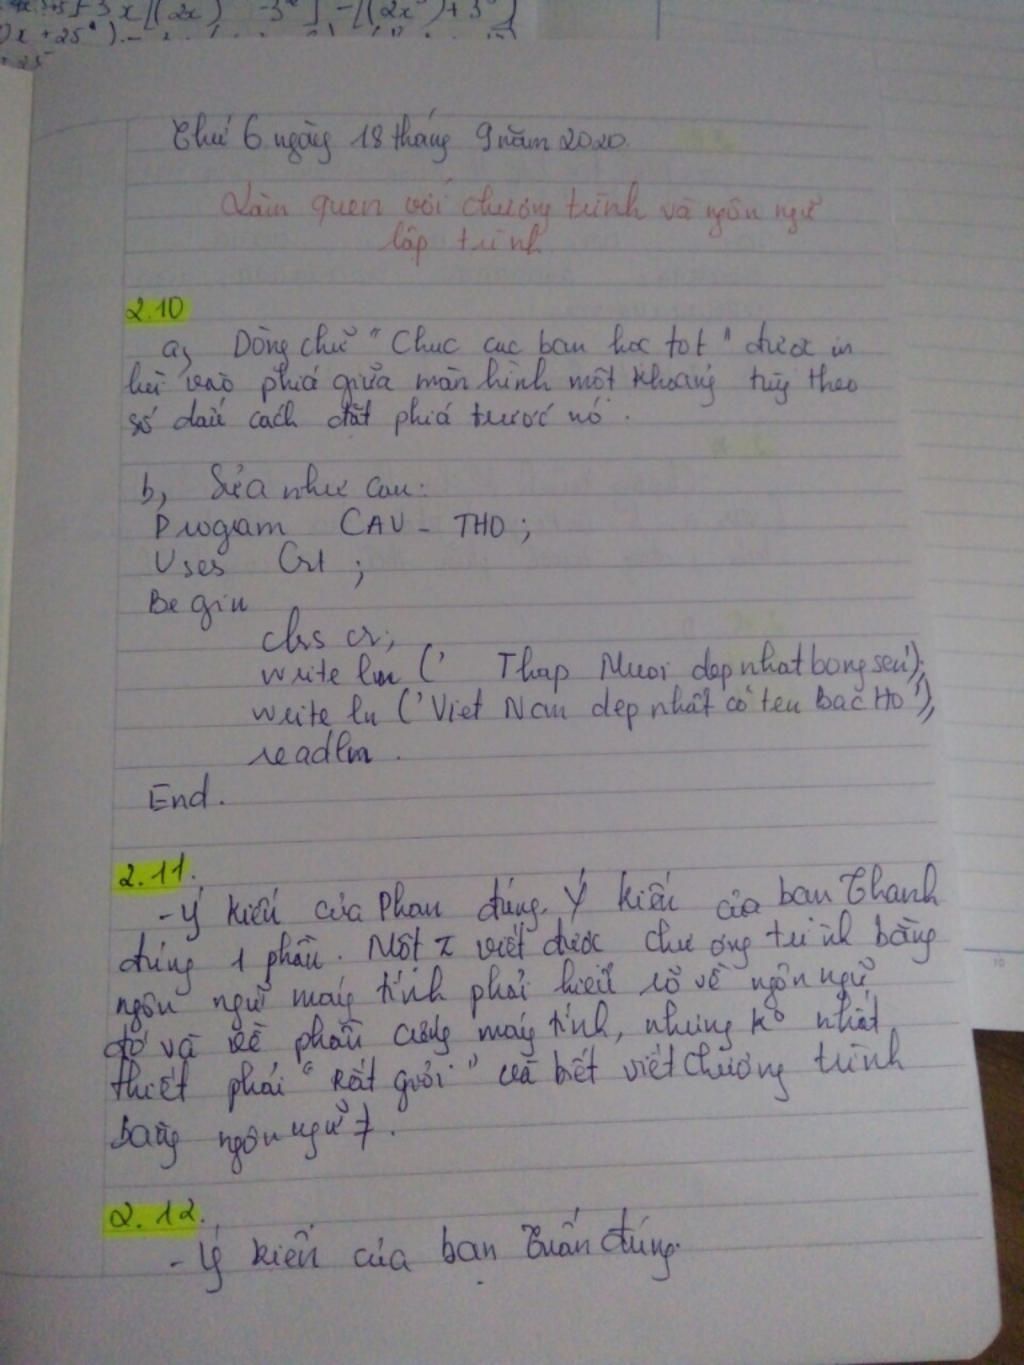 Thứ 6 ngày 18 tháng 9 năm 2020
Làm quen với chương trình và ngôn ngữ
lập trình
2.10
a, Dòng chữ "Chuc cuc ban hoc tot" được in
lùi vào phiá giữa màn hình một khoảng tùy theo
số dấu cách đặt phiá trước nó.
b, Sửa như sau:
Progam CAU-THO;
Uses Crt;
Begin
clrs cr;
write ln (' Thap Muoi dep nhat bong sen');
write ln ('Viet Nam dep nhất có ten Bac Ho');
readln.
End.
2.11.
-Ý kiến của Phan đúng. Ý kiến của ban Thanh
đúng 1 phần. Một viết được chương trình bằng
ngôn ngữ máy tính phải hiểu rõ về ngôn ngữ
đó và về phần cứng máy tính, nhưng ko nhất
thiết phải "rất giỏi" và biết viết chương trình
bằng ngôn ngữ ≠.
2.12.
-Ý kiến của ban Tuấn đúng.